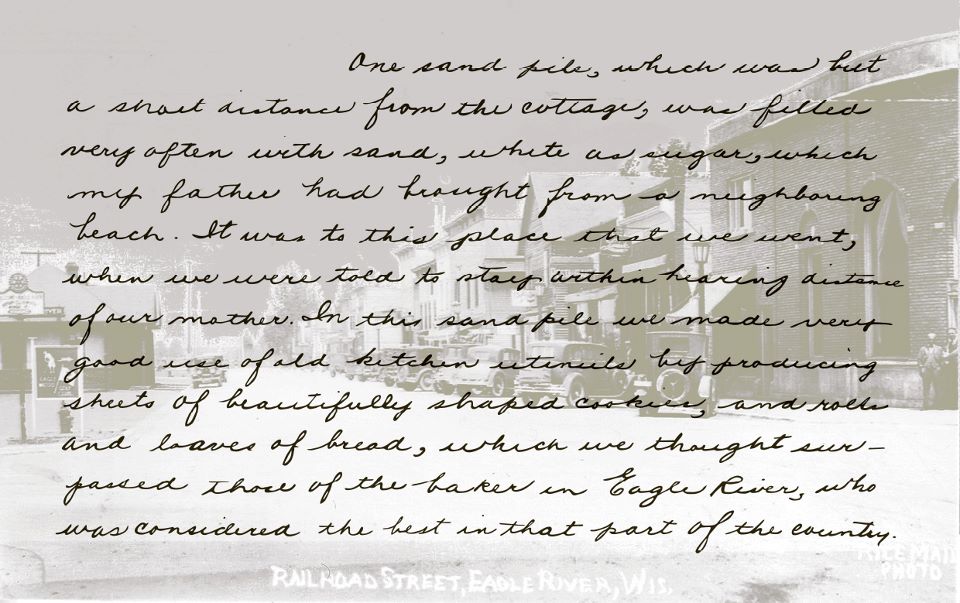 One sand pile, which was but
a short distance from the cottage, was filled
very often with sand, white as sugar, which
my father had brought from a neighboring
beach. It was to this place that we went,
when we were told to stay within hearing distance
of our mother. In this sand pile we made very
good use of old kitchen utensils by producing
sheets of beautifully shaped cookies, and rolls
and loaves of bread, which we thought sur-
passed those of the baker in Eagle River, who
was considered the best in that part of the country.
PHOTO
RAILROAD STREET, EAGLE RIVER, WIS.